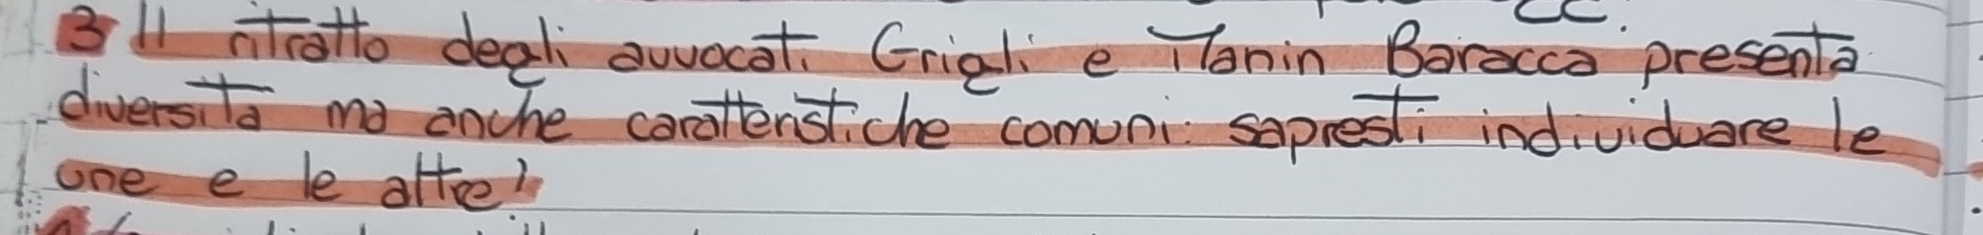 3 Il ritratto degli avvocati Grigli e Manin Baracca presenta
diversità ma anche caratteristiche comuni: sapresti individuare le
une e le altre?